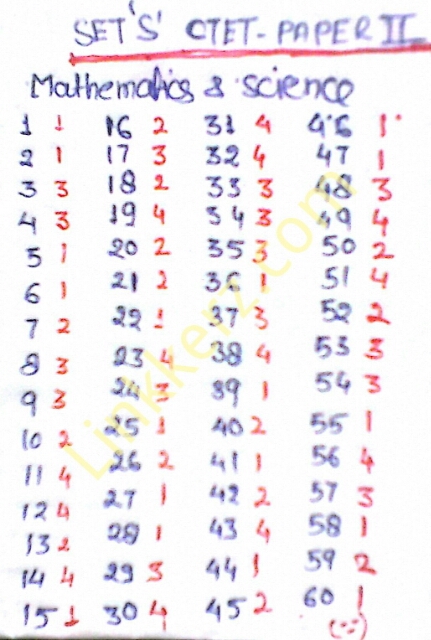 SET'S' CTET-PAPER II
Mathematics & science
1 1 16 2 31 4 46 1
2 1 17 3 32 4 47 1
3 3 18 2 33 3 48 3
4 3 19 4 34 3 49 4
5 1 20 2 35 3 50 2
6 1 21 2 36 1 51 4
7 2 22 1 37 3 52 2
8 3 23 4 38 4 53 3
9 3 24 3 39 1 54 3
10 2 25 1 40 2 55 1
11 4 26 2 41 1 56 4
12 4 27 1 42 2 57 3
13 2 28 1 43 4 58 1
14 4 29 3 44 1 59 2
15 1 30 4 45 2 60 1
Linkkerz.com